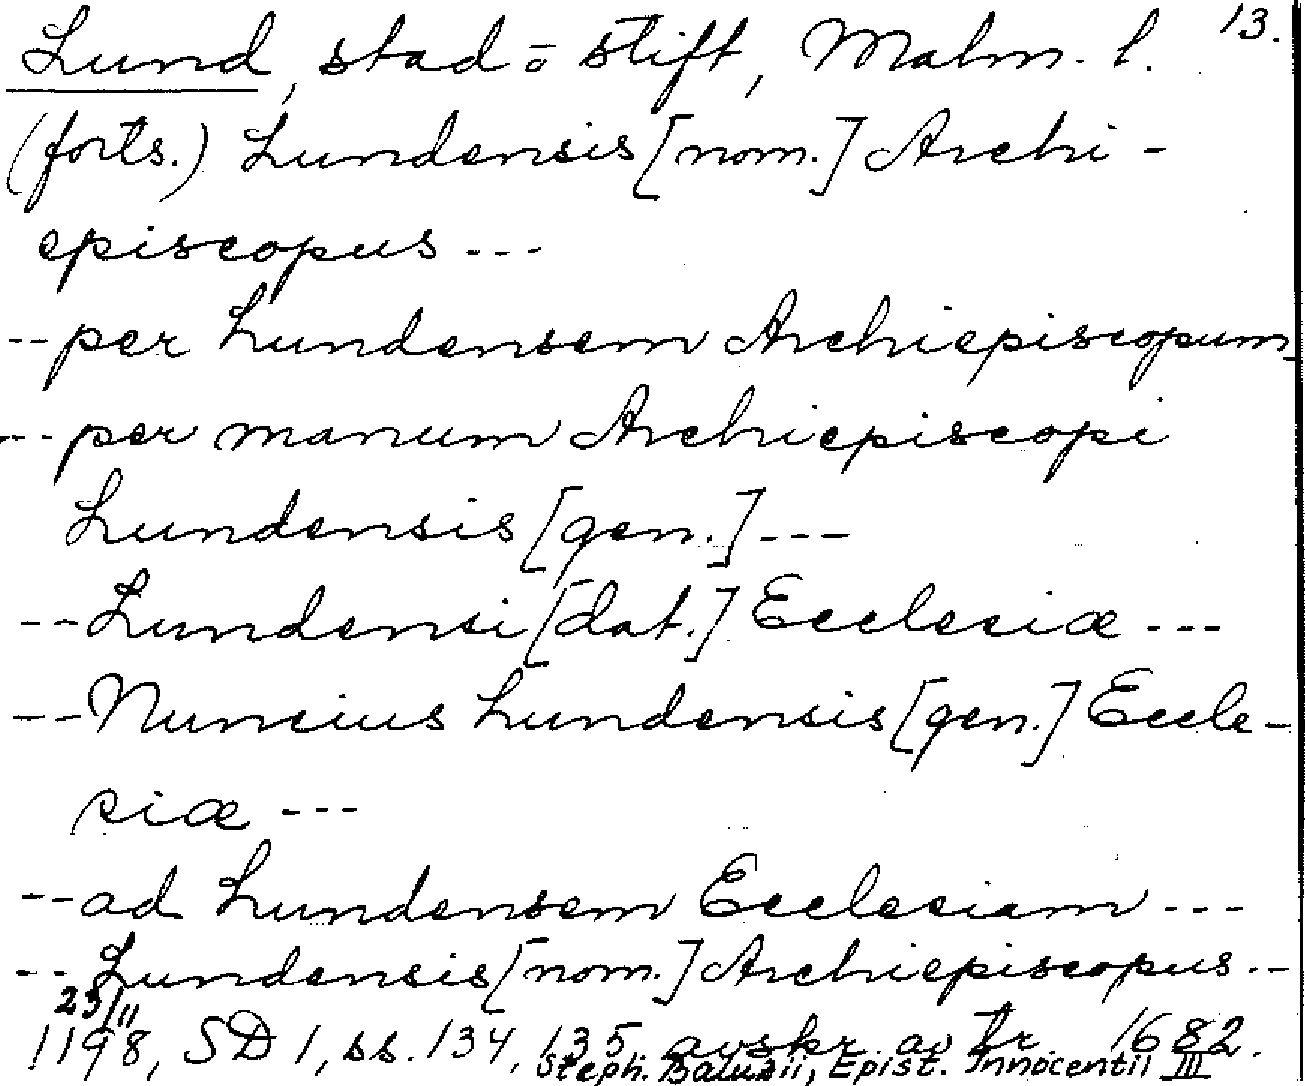 13.
Lund, stad o stift, Malm. l.
(forts.) Lundensis [nom.] Archi-
episcopus ---
-- per Lundensem Archiepiscopum
--- per manum Archiepiscopi
Lundensis [gen.] ---
-- Lundensi [dat.] Ecclesiæ ---
-- Nuncius Lundensis [gen.] Eccle-
siæ ---
-- ad Lundensem Ecclesiam ---
-- Lundensis [nom.] Archiepiscopus --
23/11
1198, SD 1, ss. 134, 135 avskr. av tr. 1682.
Steph. Baluzii, Epist. Innocentii III